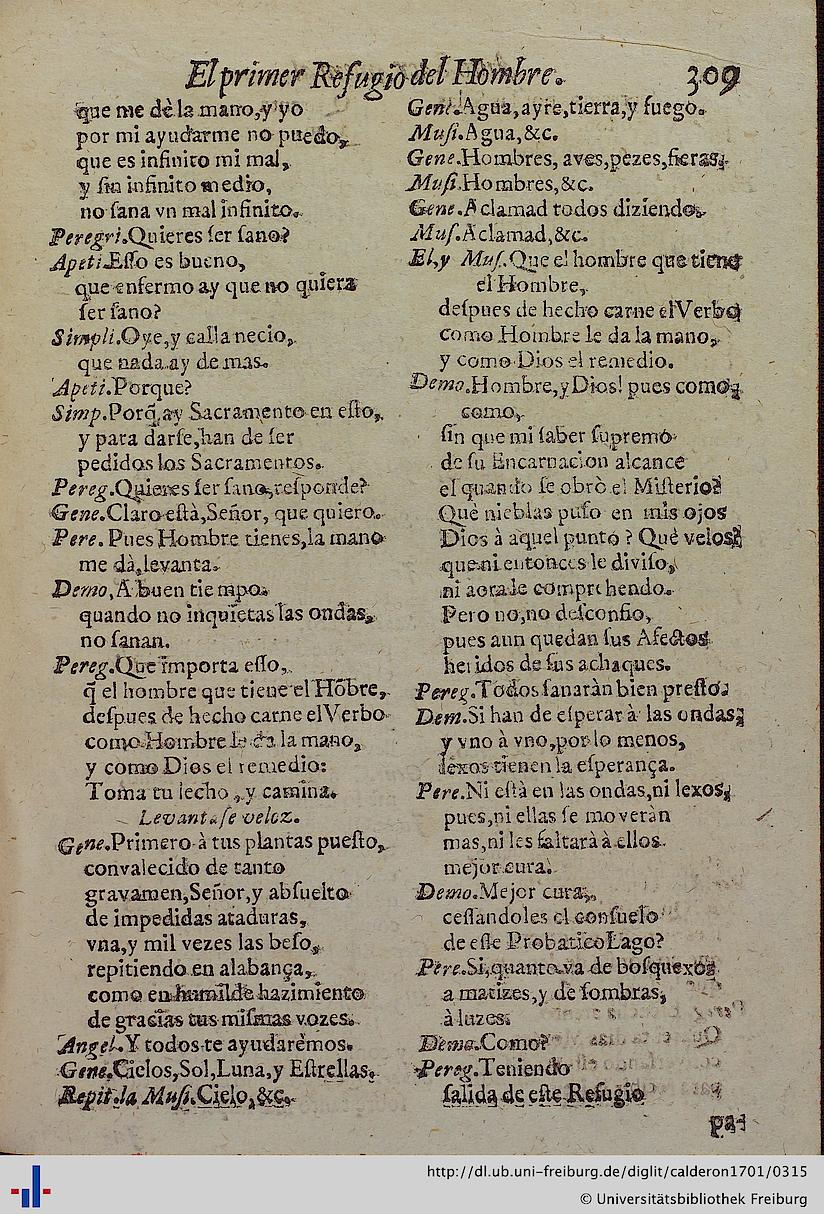 El primer Refugio del Hombre. 309
que me dè la mano, y yo
por mi ayudarme no puedo,
que es infinito mi mal,
y sin infinito medio,
no sana vn mal infinito.
Peregri. Quieres ser sano?
Apeti. Esso es bueno,
que enfermo ay que no quiera
ser sano?
Simpli. Oye, y calla necio,
que nada ay de mas.
Apeti. Porque?
Simp. Porq̃ ay Sacramento en esto,
y para darse, han de ser
pedidos los Sacramentos.
Pereg. Quieres ser sano, responde?
Gene. Claro està, Señor, que quiero.
Pere. Pues Hombre tienes, la mano
me dà, levanta.
Demo, A buen tiempo.
quando no inquietas las ondas,
no sanan.
Pereg. Que importa esso,
q̃ el hombre que tiene el Hõbre,
despues de hecho carne el Verbo
como Hombre le da la mano,
y como Dios el remedio:
Toma tu lecho, y camina.
Levantase veloz.
Gene. Primero à tus plantas puesto,
convalecido de tanto
gravamen, Señor, y absuelto
de impedidas ataduras,
vna, y mil vezes las beso,
repitiendo en alabança,
como en humilde hazimiento
de gracias tus mismas vozes.
Angel. Y todos te ayudarèmos.
Gene. Cielos, Sol, Luna, y Estrellas.
Repit. la Musi. Cielo, &c.
Gene. Agua, ayre, tierra, y fuego.
Musi. Agua, &c.
Gene. Hombres, aves, pezes, fieras,
Musi. Hombres, &c.
Gene. Aclamad todos diziendo,
Mus. Aclamad, &c.
El, y Mus. Que el hombre que tiene
el Hombre,
despues de hecho carne el Verbo
como Hombre le da la mano,
y como Dios el remedio.
Demo. Hombre, y Dios! pues como,
como,
sin que mi saber supremo
de su Encarnacion alcance
el quando se obrò el Misterio?
Què nieblas puso en mis ojos
Dios à aquel punto? Què velos,
que ni entonces le diviso,
ni aora le comprehendo.
Pero no, no desconfio,
pues aun quedan sus Afectos
heridos de sus achaques.
Pereg. Todos sanaràn bien presto.
Dem. Si han de esperar à las ondas,
y vno à vno, por lo menos,
lexos tienen la esperança.
Pere. Ni està en las ondas, ni lexos,
pues, ni ellas se moveràn
mas, ni les faltarà à ellos
mejor cura.
Demo. Mejor cura,
cessandoles el consuelo
de este Probatico Lago?
Pere. Si, quanto va de bosquexos
a matizes, y de sombras,
à luzes.
Demo. Como?
Pereg. Teniendo
salida de este Refugio
pa-
http://dl.ub.uni-freiburg.de/diglit/calderon1701/0315
© Universitätsbibliothek Freiburg